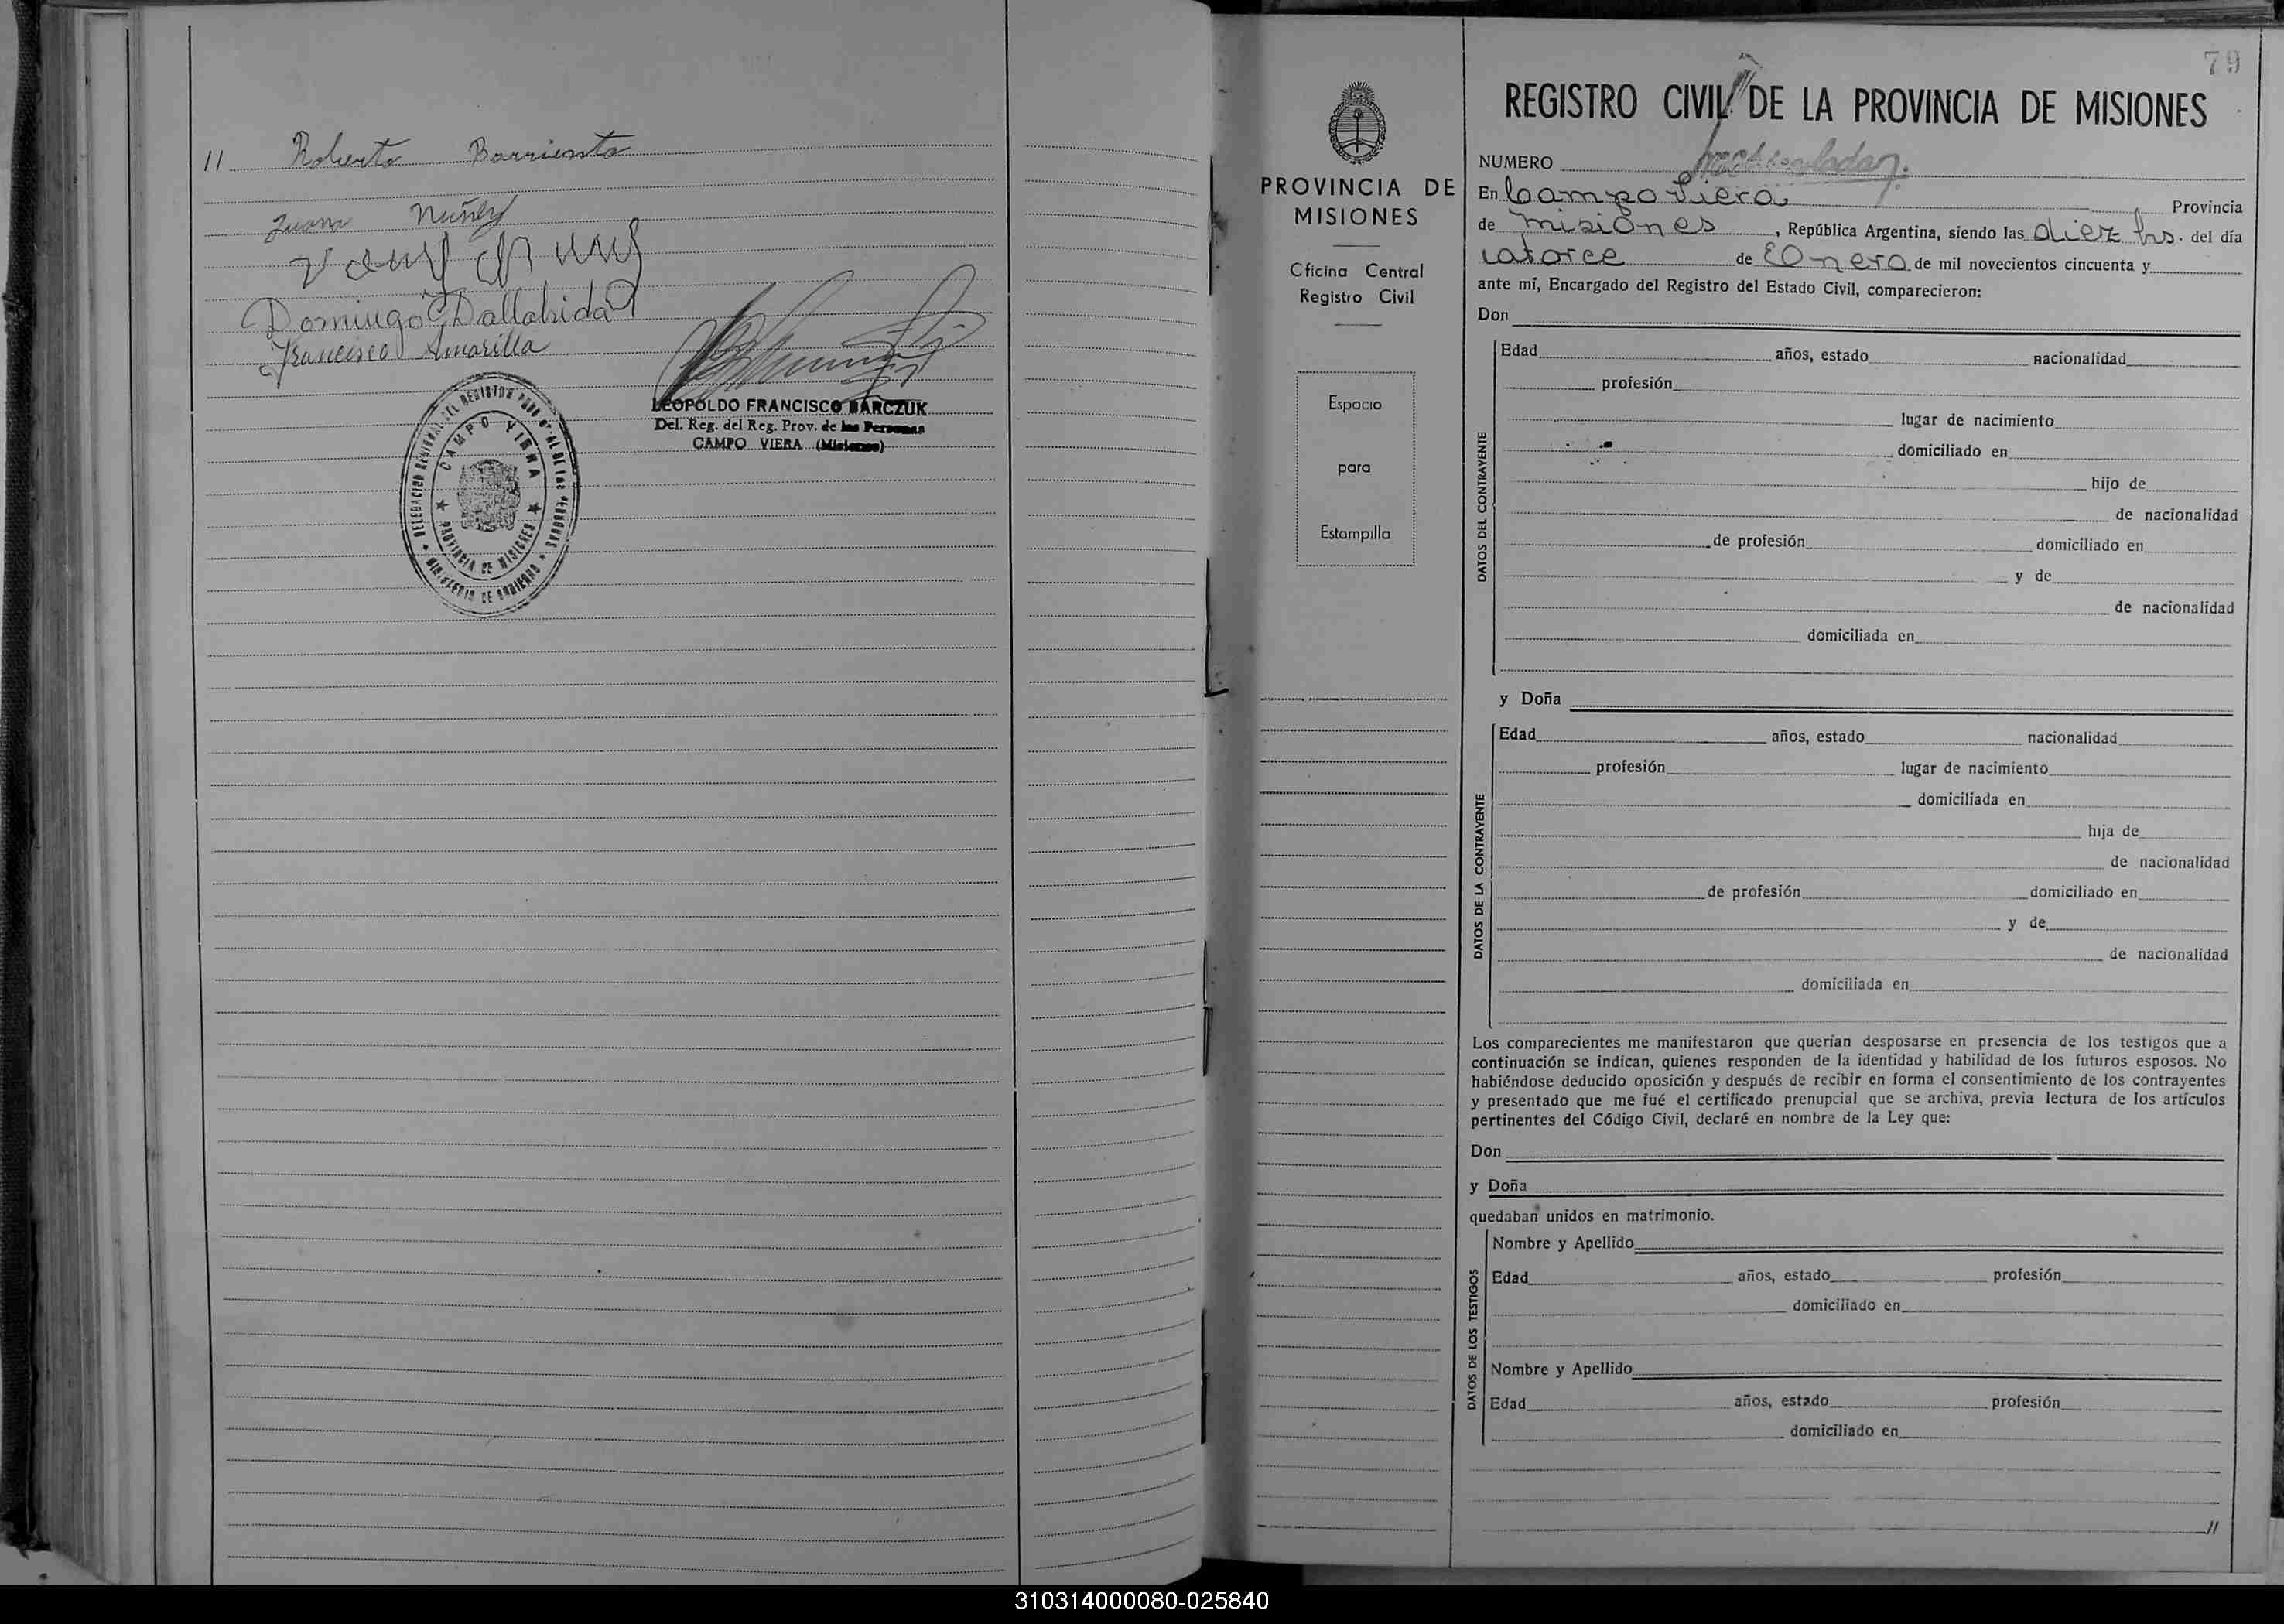 // Roberto Barrientos
Juan Nuñez
Domingo Dallabida
Francisco Amarilla
LEOPOLDO FRANCISCO BARCZUK
Del. Reg. del Reg. Prov. de las Personas
CAMPO VIERA (Misiones)
CAMPO VIERA
PROVINCIA DE MISIONES
MINISTERIO DE GOBIERNO
PROVINCIA DE
MISIONES
Oficina Central
Registro Civil
Espacio
para
Estampilla
79
REGISTRO CIVIL DE LA PROVINCIA DE MISIONES
NUMERO
En Campo Viera Provincia
de Misiones, República Argentina, siendo las diez hs. del día
catorce de Enero de mil novecientos cincuenta y
ante mí, Encargado del Registro del Estado Civil, comparecieron:
Don
DATOS DEL CONTRAYENTE
Edad años, estado nacionalidad
profesión
lugar de nacimiento
domiciliado en
hijo de
de nacionalidad
de profesión domiciliado en
y de
de nacionalidad
domiciliada en
y Doña
DATOS DE LA CONTRAYENTE
Edad años, estado nacionalidad
profesión lugar de nacimiento
domiciliada en
hija de
de nacionalidad
de profesión domiciliado en
y de
de nacionalidad
domiciliada en
Los comparecientes me manifestaron que querían desposarse en presencia de los testigos que a
continuación se indican, quienes responden de la identidad y habilidad de los futuros esposos. No
habiéndose deducido oposición y después de recibir en forma el consentimiento de los contrayentes
y presentado que me fué el certificado prenupcial que se archiva, previa lectura de los artículos
pertinentes del Código Civil, declaré en nombre de la Ley que:
Don
y Doña
quedaban unidos en matrimonio.
DATOS DE LOS TESTIGOS
Nombre y Apellido
Edad años, estado profesión
domiciliado en
Nombre y Apellido
Edad años, estado profesión
domiciliado en
//
310314000080-025840